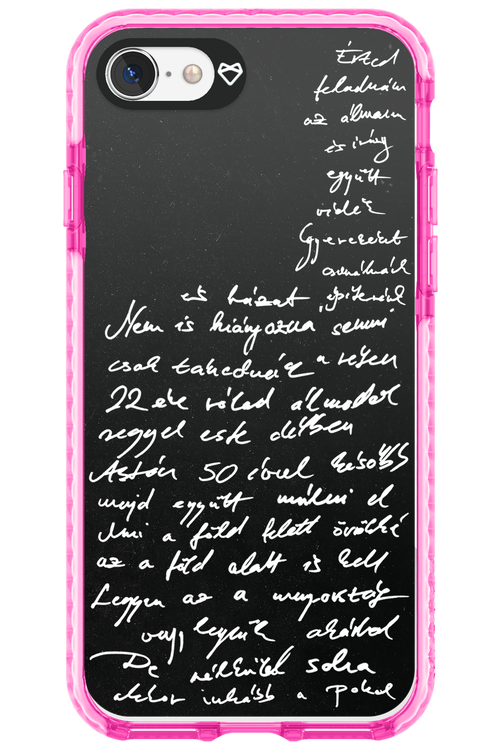 Érted
feladnám
az álmaim
és így
együtt
vidék
Gyerekeket
csinálnánk
és házat építenénk
Nem is hiányozna semmi
csak takednék a réten
22 éve rólad álmodok
reggel este délben
Aztán 50 évvel később
majd együtt múlni el
Ami a föld felett örökké
az a föld alatt is kell
Legyen az a mennyország
vagy legyünk akárhol
De nélküled soha
akkor inkább a Pokol